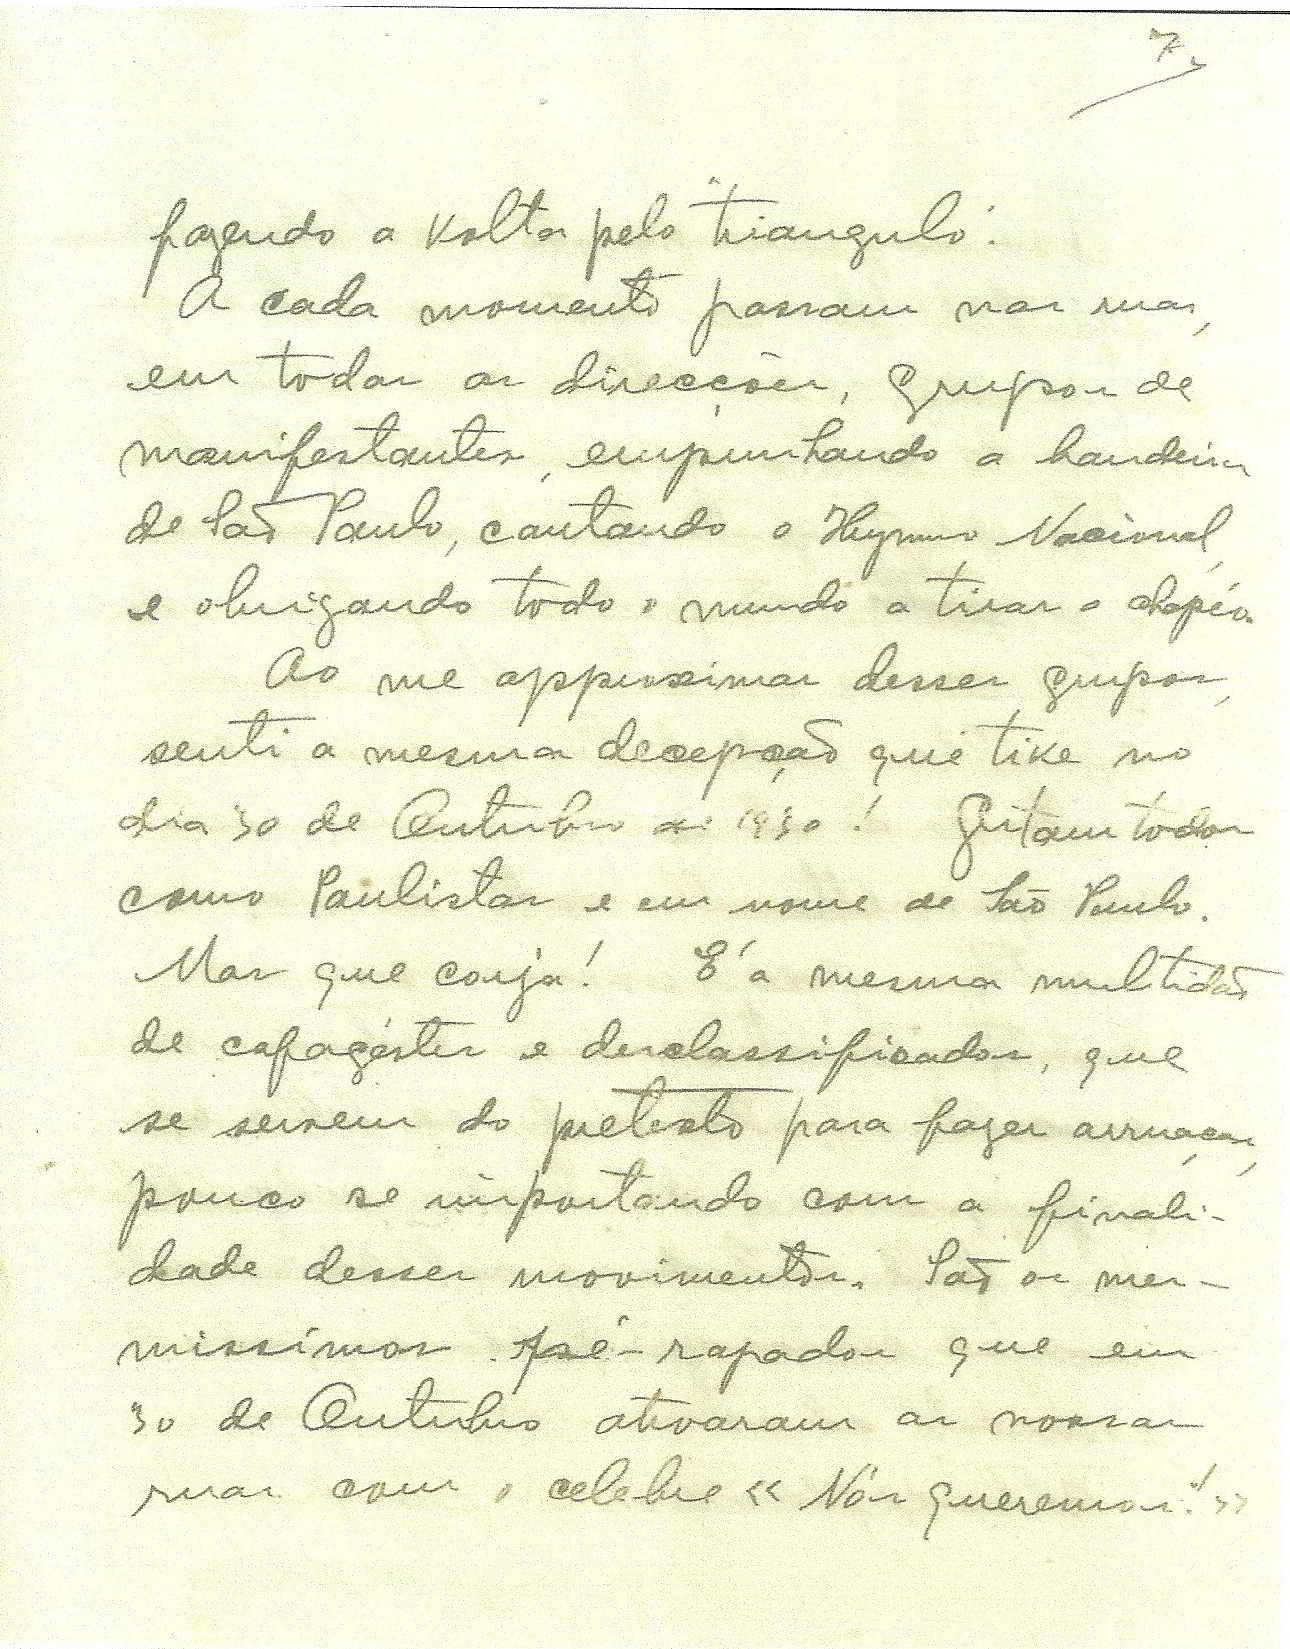 7
fazendo a volta pelo "triangulo".
A cada momento passam nas ruas,
em todas as direcções, grupos de
manifestantes, empunhando a bandeira
de São Paulo, cantando o Hymno Nacional,
e obrigando todo o mundo a tirar o chapéo.
Ao me approximar desses grupos,
senti a mesma decepção que tive no
dia 30 de Outubro de 1930! Gritam todos
como Paulistas e em nome de São Paulo.
Mas que corja! É a mesma multidão
de cafagéstes e desclassificados, que
se servem do pretexto para fazer arruaças,
pouco se importando com a finali-
dade desses movimentos. São os mes-
missímos pé-rapados que em
30 de Outubro atroaram as nossas
ruas com o celebre « Nós queremos! »